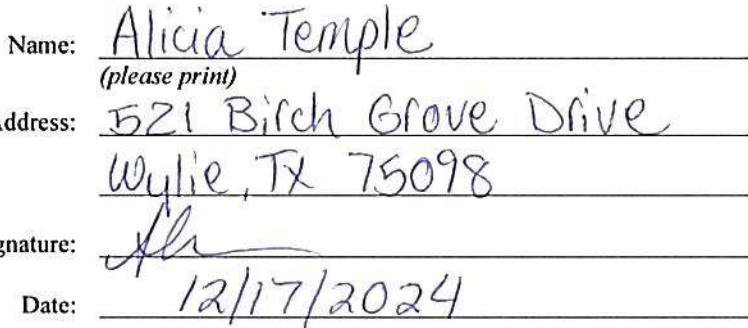 Name: Alicia Temple
(please print)
ddress: 521 Birch Grove Drive
Wylie, TX 75098
gnature:
Date: 12/17/2024